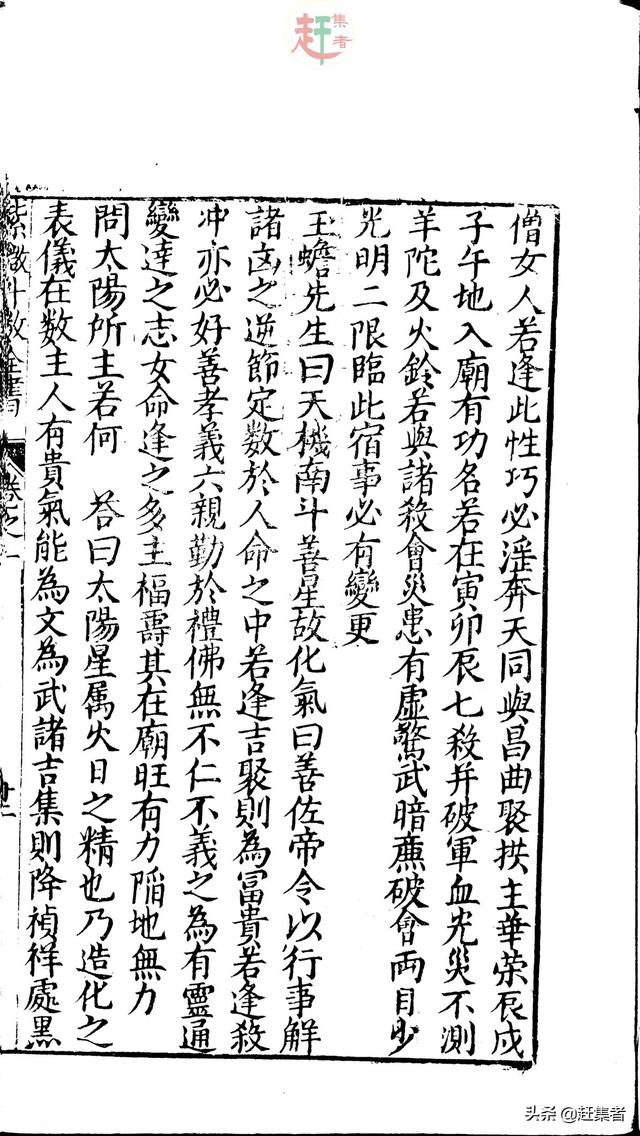 赶集者
僧女人若逢此性巧必淫奔天同與昌曲聚拱主華荣辰戍
子午地入廟有功名若在寅卯辰七殺并破軍血光災不測
羊陀及火鈴若與諸殺會災患有虛驚武暗廉破會両目少
光明二限臨此宿事必有變更
玉蟾先生曰天機南斗善星故化氣曰善佐帝令以行事解
諸凶之逆節定数於人命之中若逢吉聚則為冨貴若逢殺
冲亦必好善孝義六親勤於禮佛無不仁不義之為有靈通
變達之志女命逢之多主福壽其在廟旺有力陷地無力
問太陽所主若何 荅曰太陽星属火日之精也乃造化之
表儀在数主人有貴氣能為文為武諸吉集則降禎祥處黑
紫微斗数全書 卷之一
廿二
头条 @赶集者